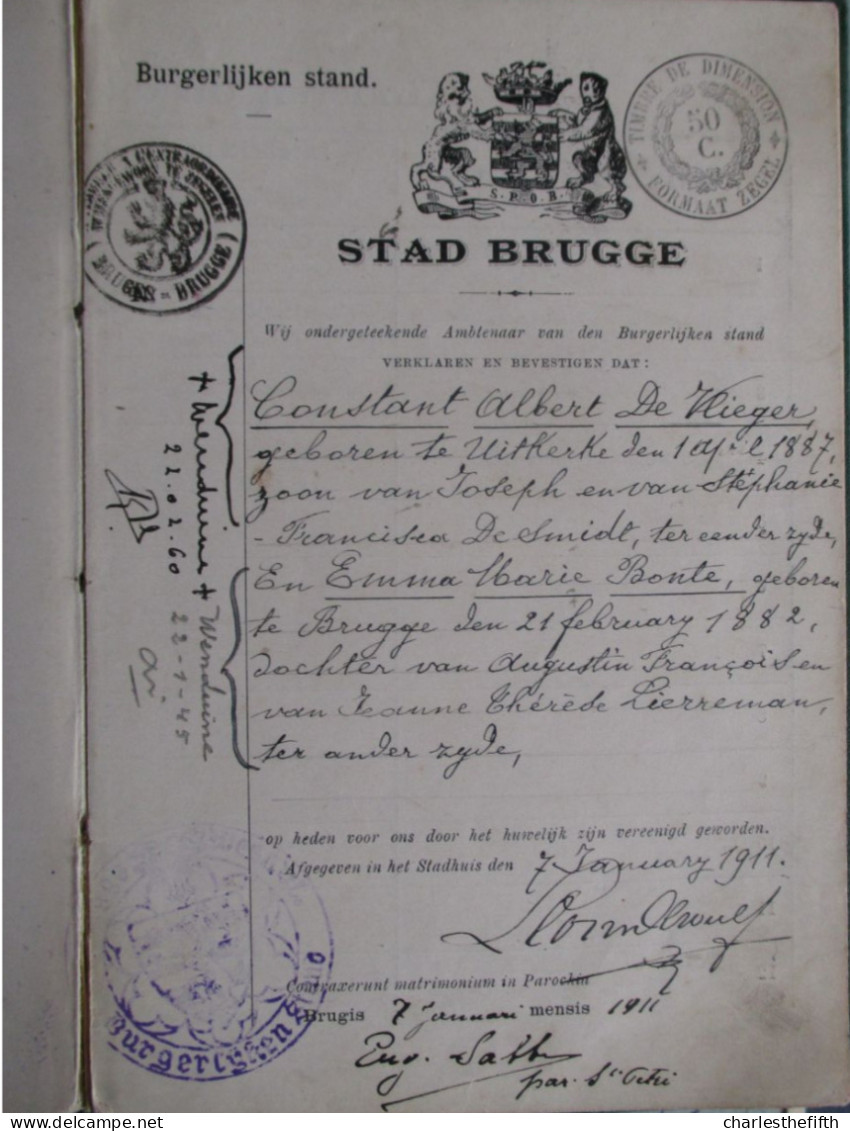 Burgerlijken stand.
S.P.Q.B.
TIMBRE DE DIMENSION
50
C.
FORMAAT ZEGEL
BRUGES - BRUGGE
STAD BRUGGE
Wij ondergeteekende Ambtenaar van den Burgerlijken stand
VERKLAREN EN BEVESTIGEN DAT:
Constant Albert De Vlieger,
geboren te Uitkerke den 1 april 1887,
zoon van Joseph en van Stéphanie
-Francisca De Smidt, ter eender zyde,
En Emma Marie Bonte, geboren
te Brugge den 21 february 1882,
dochter van Augustin François en
van Jeanne Thérèse Lierreman,
ter ander zyde,
+ Wenduine
22.02.60
+ Wenduine
22-1-45
op heden voor ons door het huwelijk zijn vereenigd geworden.
Afgegeven in het Stadhuis den 7 January 1911.
Contraxerunt matrimonium in Parochia
Brugis 7 Januari mensis 1911
Eug.
par. St Petri
Burgerlyken Stand
charlesthefifth